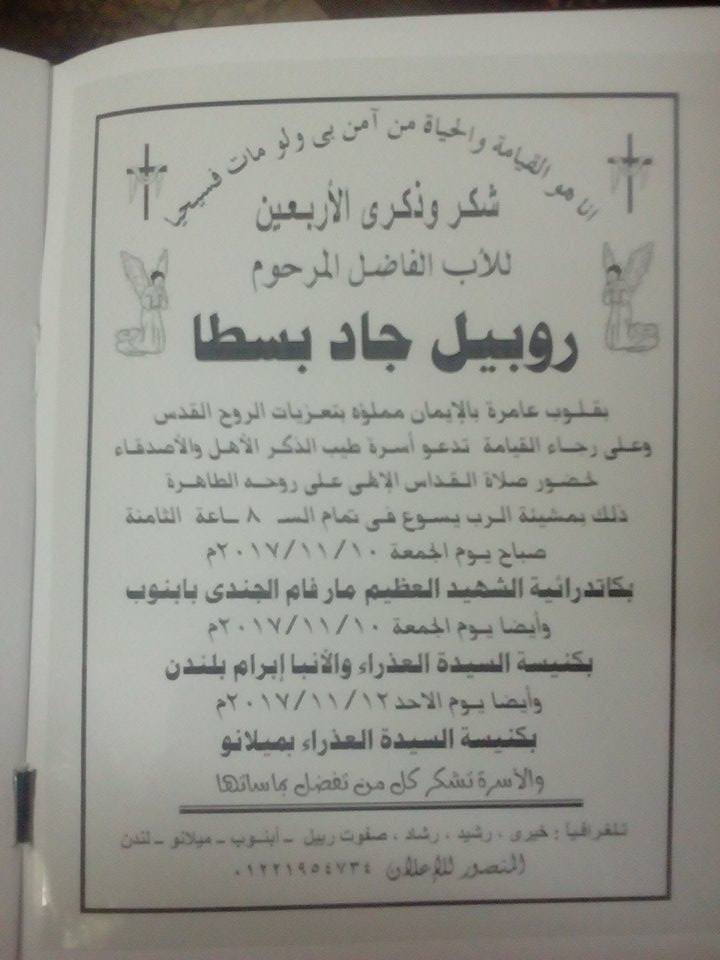 انا هو القيامة والحياة من آمن بى ولو مات فسيحيا
شكر وذكرى الأربعين
للأب الفاضل المرحوم
روبيل جاد بسطا
بقلوب عامرة بالإيمان مملؤه بتعزيات الروح القدس
وعلى رجاء القيامة تدعو أسرة طيب الذكر الأهل والأصدقاء
لحضور صلاة القداس الإلهى على روحه الطاهرة
ذلك بمشيئة الرب يسوع فى تمام السـ ٨ ـاعة الثامنة
صباح يوم الجمعة ٢٠١٧/١١/١٠م
بكاتدرائية الشهيد العظيم مار فام الجندى بابنوب
وأيضا يوم الجمعة ٢٠١٧/١١/١٠م
بكنيسة السيدة العذراء والأنبا إبرام بلندن
وأيضا يوم الاحد ٢٠١٧/١١/١٢م
بكنيسة السيدة العذراء بميلانو
والأسرة تشكر كل من تفضل بماساتها
تلغرافيا : خيرى ، رشيد ، رشاد ، صفوت ربيل - أبنوب - ميلانو - لندن
المنصور للإعلان ٠١٢٢١٩٥٤٧٣٤